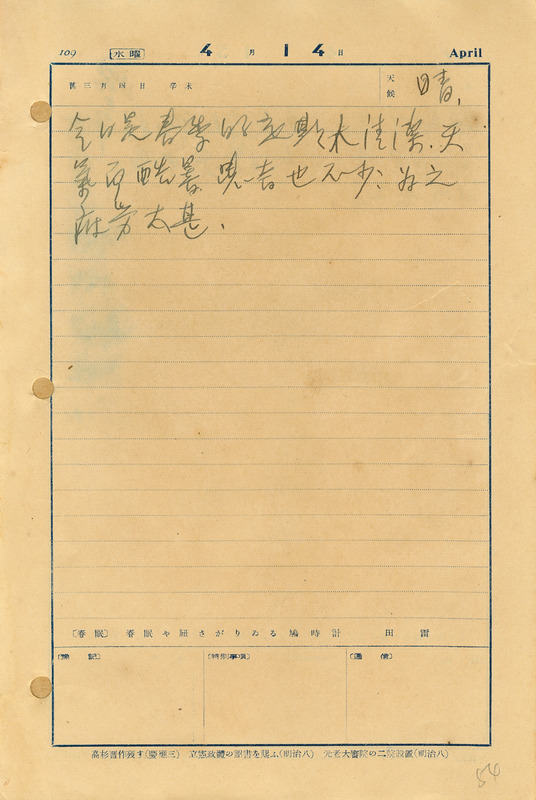 109 [水曜] 4月14日 April
舊三月四日 辛未 天候 晴、
今日是春季的
清潔、天
氣
酷暑、
也不少、為之
疲労太甚、
[春眠] 春眠や紐さがりゐる鳩時計 田雷
[豫記] [特別事項] [通信]
高杉晋作歿す(慶應三) 立憲政體の詔書を賜ふ(明治八) 元老大審院の二院設置(明治八)
54